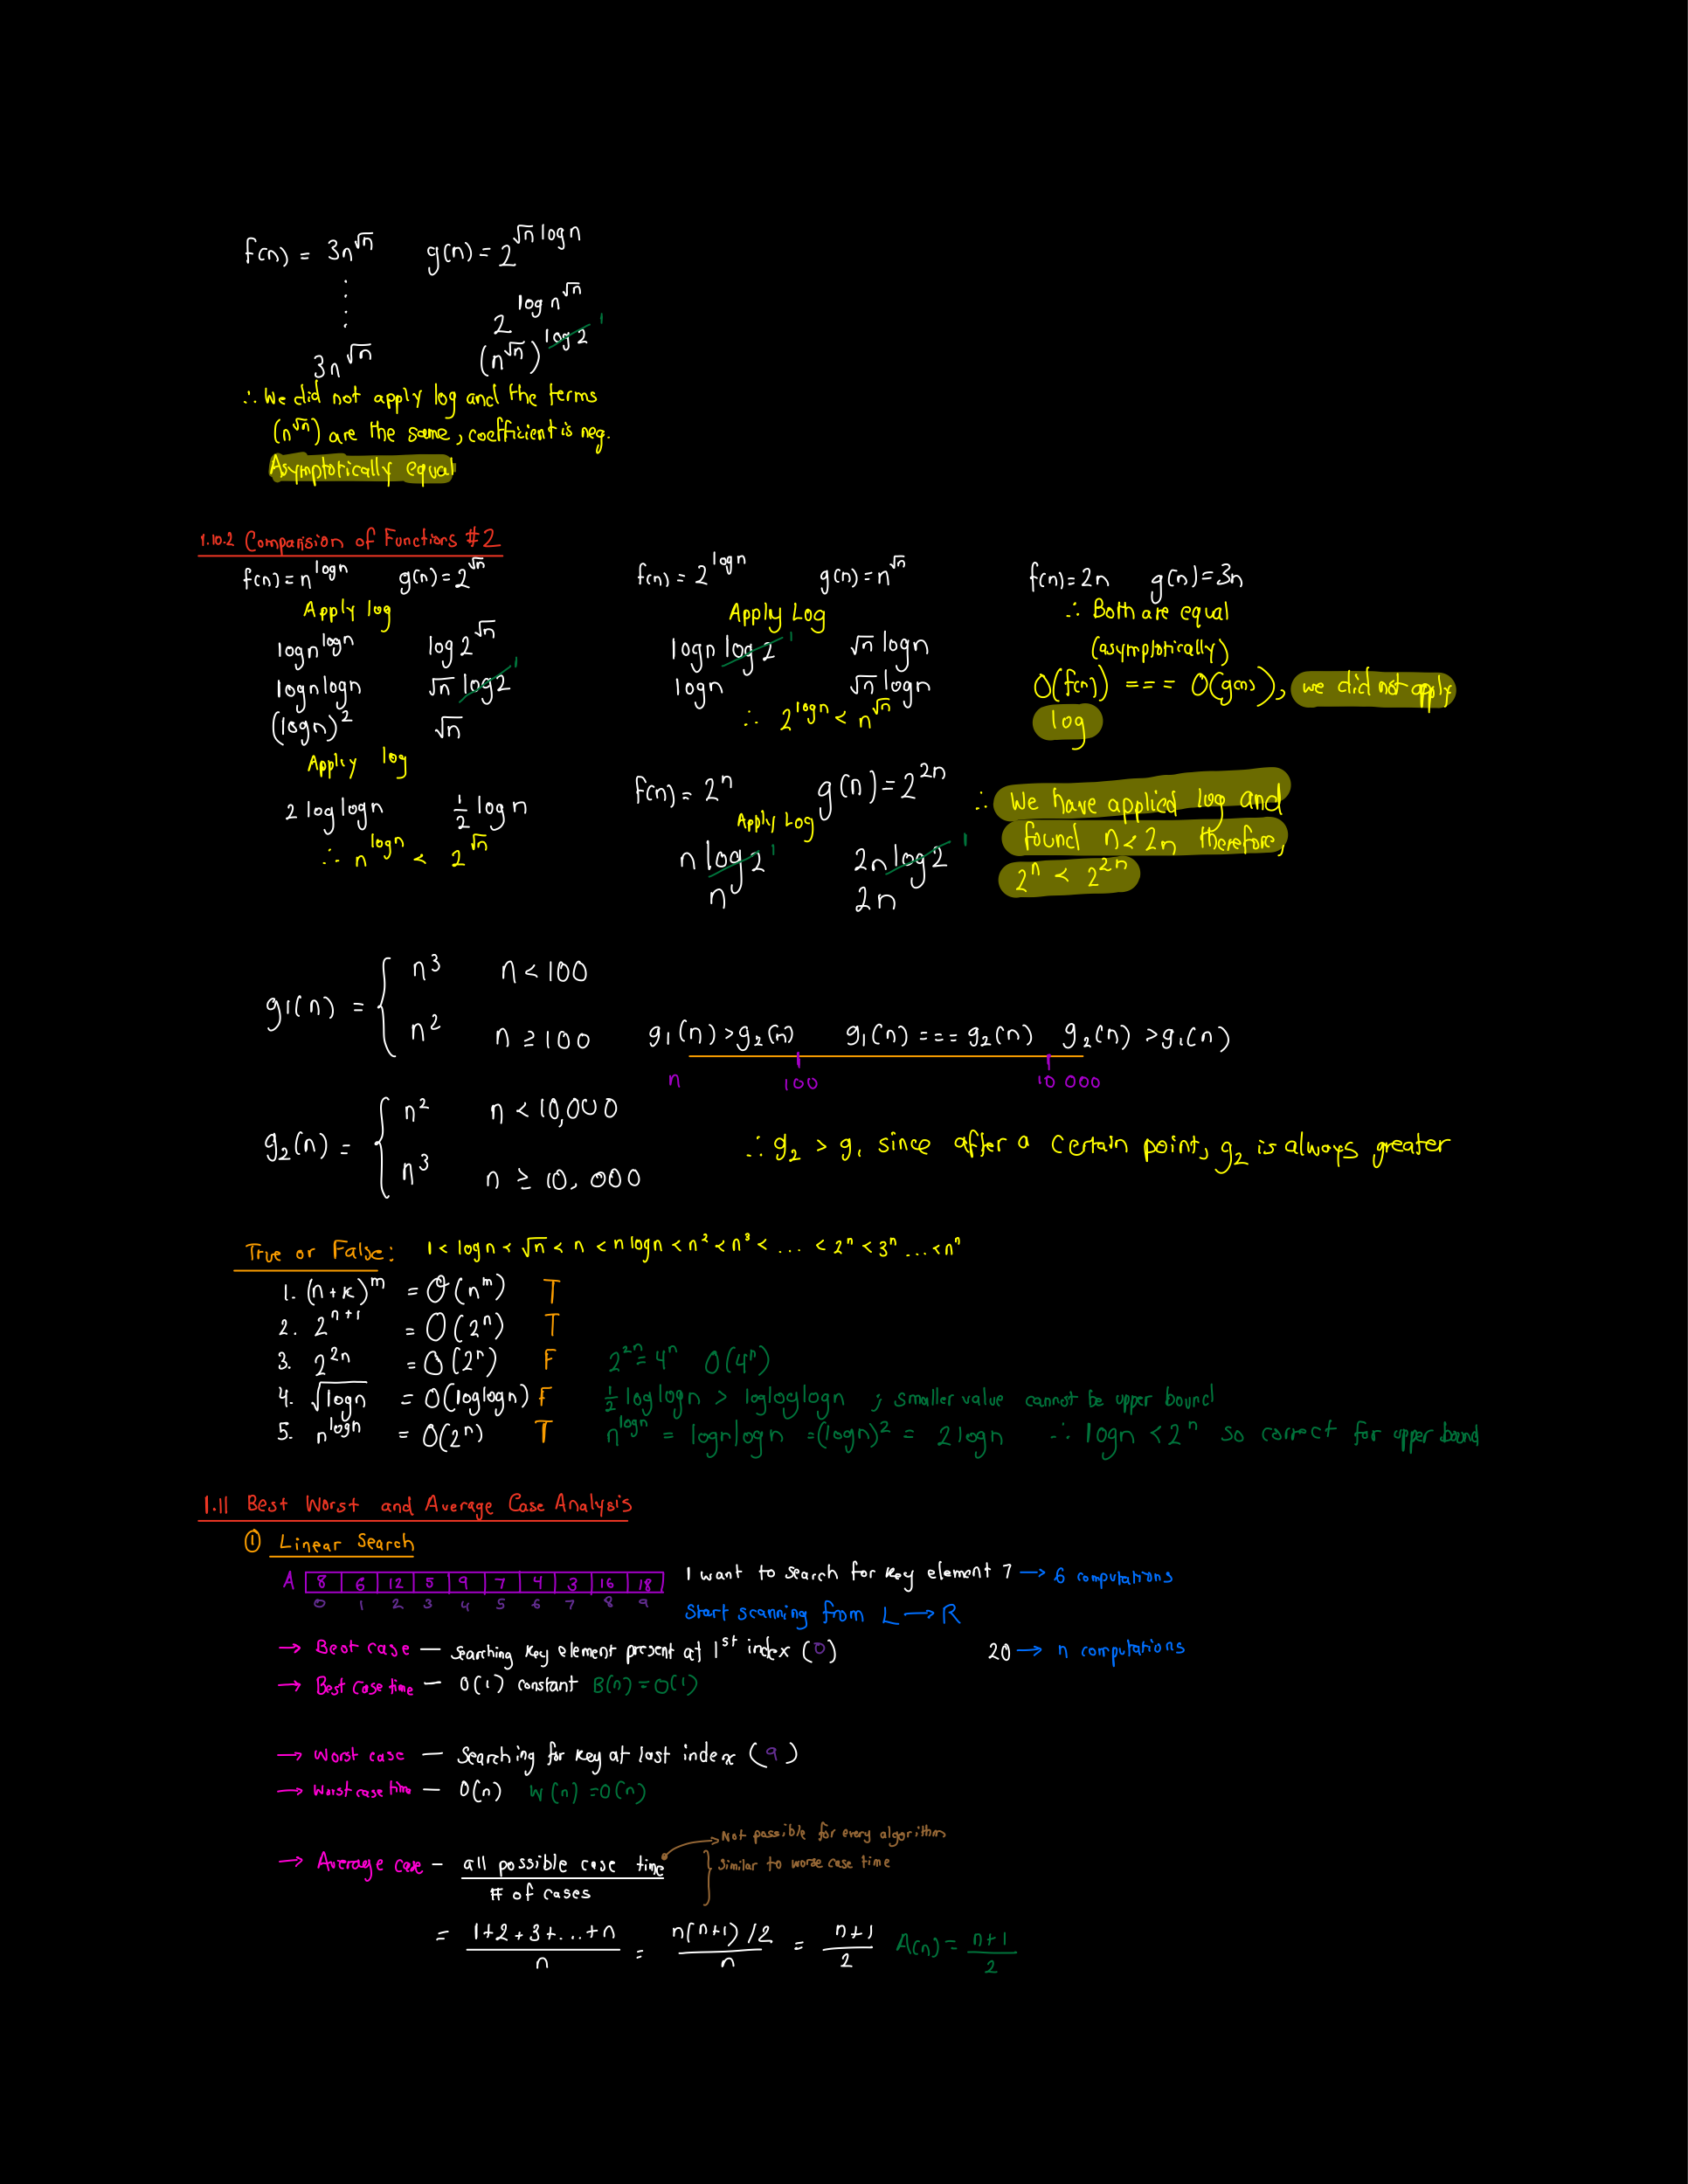 f(n) = 3n^√n g(n) = 2^(√n log n)
⋮ 2^(log n^√n)
3n^√n (n^√n)^(log 2) 1
∴ We did not apply log and the terms
(n^√n) are the same, coefficient is neg.
Asymptotically equal
1.10.2 Comparision of Functions #2
f(n) = n^(log n) g(n) = 2^√n
Apply log
log n^(log n) log 2^√n
log n log n √n log 2 1
(log n)^2 √n
Apply log
2 log log n 1/2 log n
∴ n^(log n) < 2^√n
f(n) = 2^(log n) g(n) = n^√n
Apply Log
log n log 2 1 √n log n
log n √n log n
∴ 2^(log n) < n^√n
f(n) = 2n g(n) = 3n
∴ Both are equal
(asymptotically)
O(f(n)) === O(g(n)), we did not apply
log
f(n) = 2^n g(n) = 2^(2n)
Apply Log
n log 2 1 2n log 2 1
n 2n
∴ We have applied log and
found n < 2n therefore,
2^n < 2^(2n)
g1(n) = { n^3 n < 100
n^2 n ≥ 100
g₁(n) > g₂(n) g₁(n) === g₂(n) g₂(n) > g₁(n)
n 100 10 000
g₂(n) = { n^2 n < 10,000
n^3 n ≥ 10,000
∴ g₂ > g₁ since after a certain point, g₂ is always greater
True or False: 1 < log n < √n < n < n log n < n^2 < n^3 < ... < 2^n < 3^n ... < n^n
1. (n+k)^m = Θ(n^m) T
2. 2^(n+1) = O(2^n) T
3. 2^(2n) = O(2^n) F 2^(2n) = 4^n O(4^n)
4. √(log n) = O(log log n) F 1/2 log log n > log log log n ; smaller value cannot be upper bound
5. n^(log n) = O(2^n) T n^(log n) = log n log n = (log n)^2 = 2 log n ∴ log n < 2^n so correct for upper bound
1.11 Best Worst and Average Case Analysis
① Linear Search
A 8 6 12 5 9 7 4 3 16 18
0 1 2 3 4 5 6 7 8 9
I want to search for key element 7 → 6 computations
Start scanning from L → R
→ Best case — Searching key element present at 1st index (0)
20 → n computations
→ Best case time — O(1) constant B(n) = O(1)
→ Worst case — Searching for key at last index (9)
→ Worst case time — O(n) W(n) = O(n)
→ Not possible for every algorithm
→ Average case - all possible case time / # of cases
} Similar to worse case time
= (1+2+3+...+n)/n = (n(n+1)/2)/n = (n+1)/2 A(n) = (n+1)/2